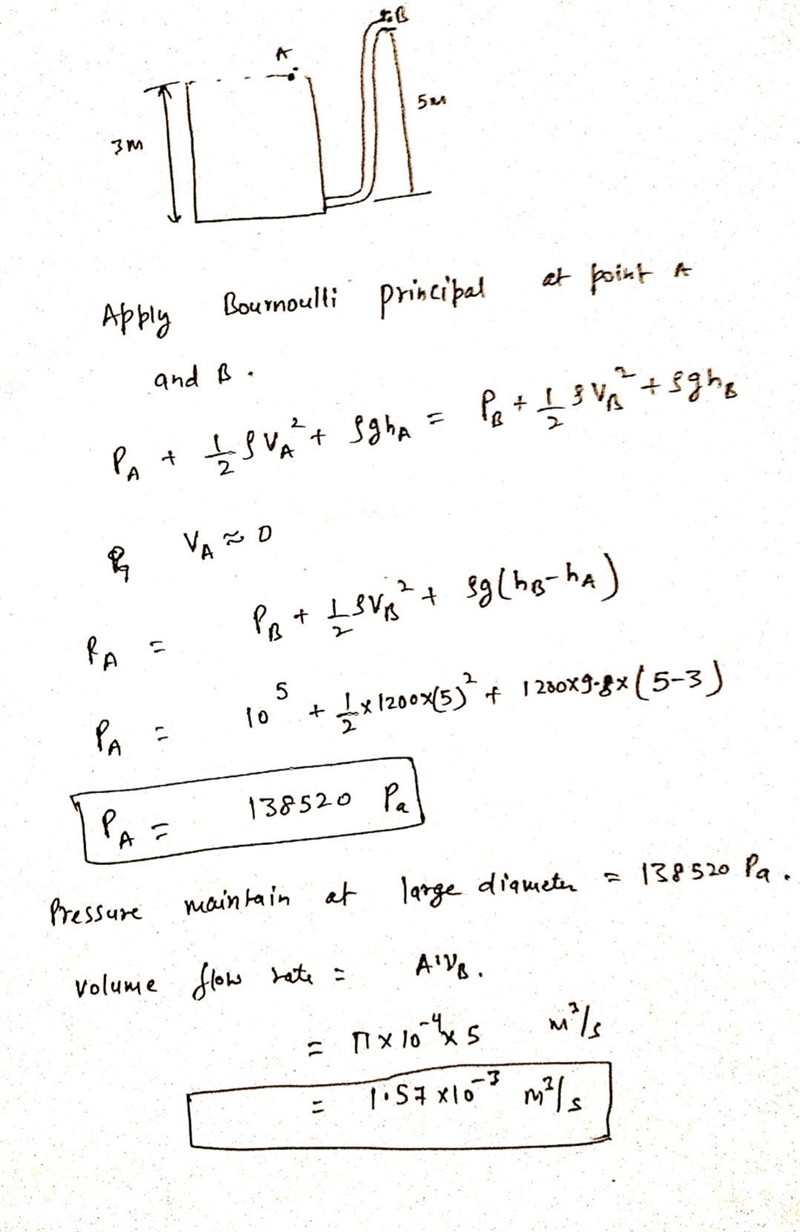 B
A
5m
3m
Apply Bournoulli principal at point A
and B.
P_A + 1/2 ρV_A² + ρgh_A = P_B + 1/2 ρV_B² + ρgh_B
V_A ≈ 0
P_A = P_B + 1/2 ρV_B² + ρg(h_B-h_A)
P_A = 10⁵ + 1/2 x 1200x(5)² + 1200x9.8x(5-3)
P_A = 138520 Pa
Pressure maintain at large diameter = 138520 Pa.
volume flow rate = A'V_B.
= π x 10⁻⁴ x 5 m³/s
= 1.57 x10⁻³ m³/s